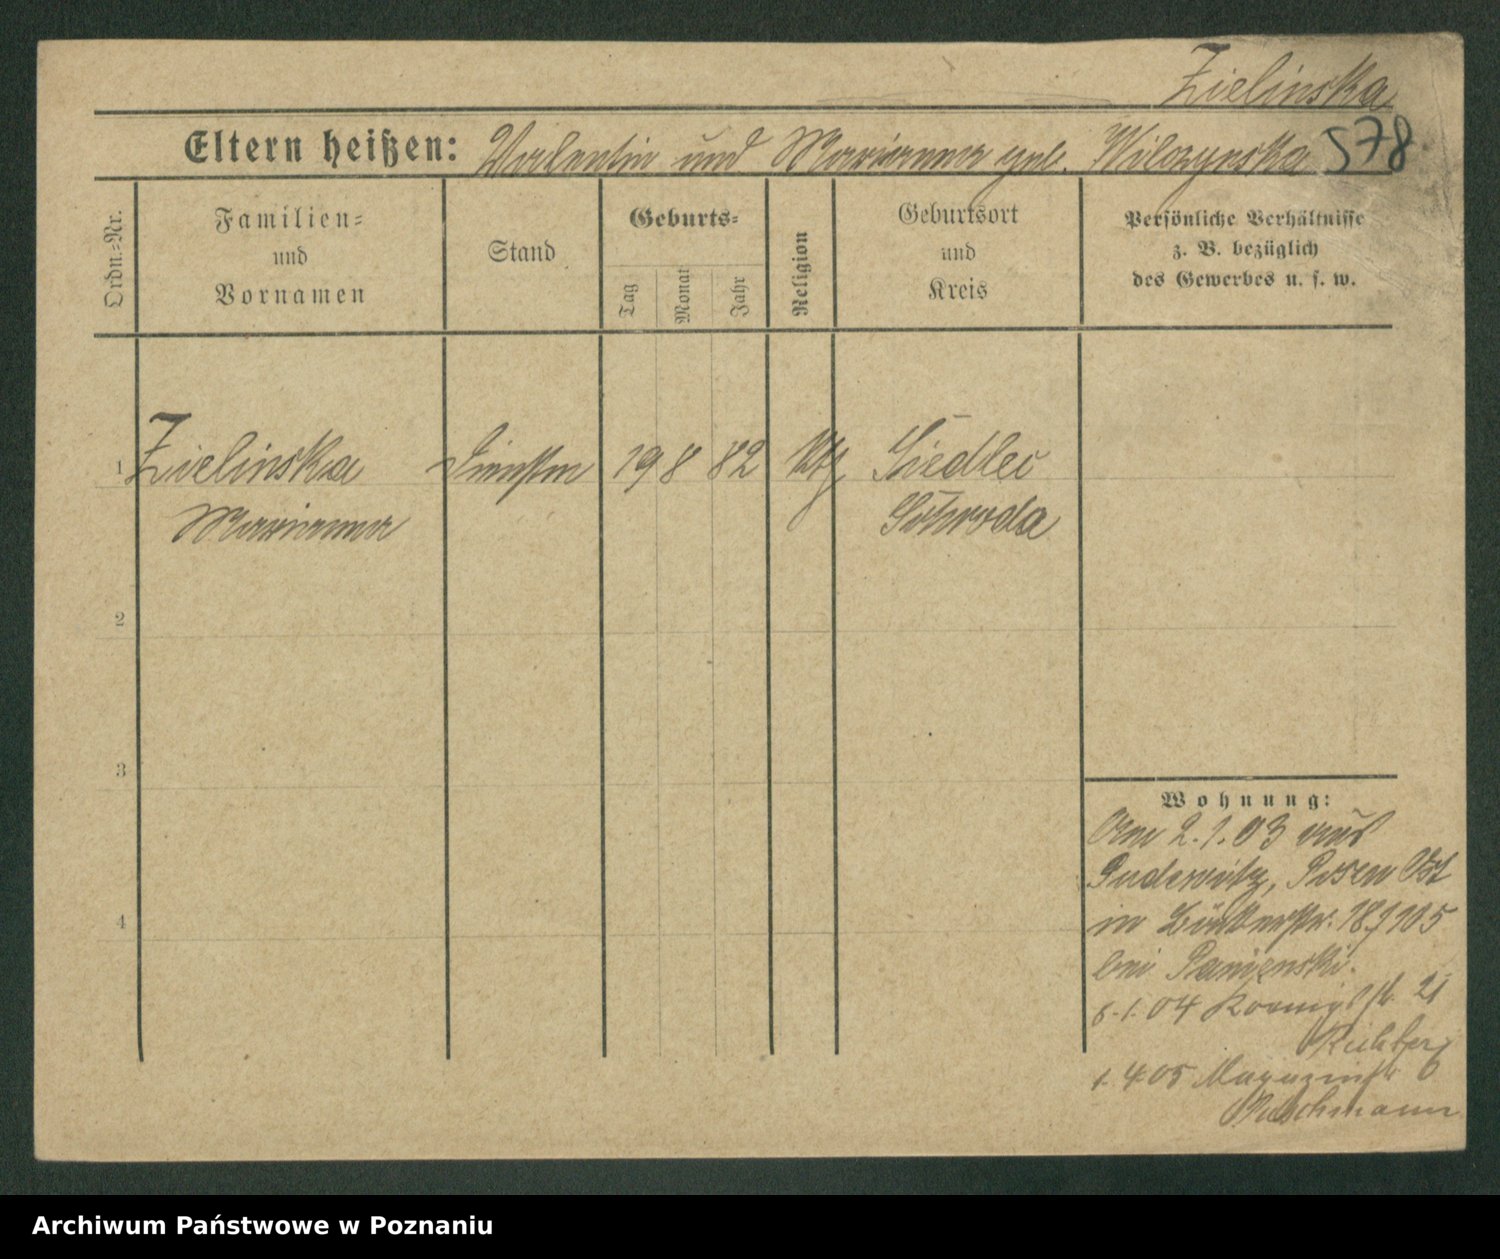 Zielinska
Eltern heißen: Valentin und Marianna geb. Wilczynska 578
Ordn.=Nr.
Familien=
und
Vornamen
Stand
Geburts=
Tag
Monat
Jahr
Religion
Geburtsort
und
Kreis
Persönliche Verhältnisse
z. B. bezüglich
des Gewerbes u. s. w.
1 Zielinska 19 8 82 Kth Siedlec
Marianna Schroda
2
3
4
Wohnung:
Am 2.1.03 aus
Pudewitz, Posen Ost
in 18/105
bei
6.1.04 21
1.4.05 Magazinstr
Archiwum Państwowe w Poznaniu